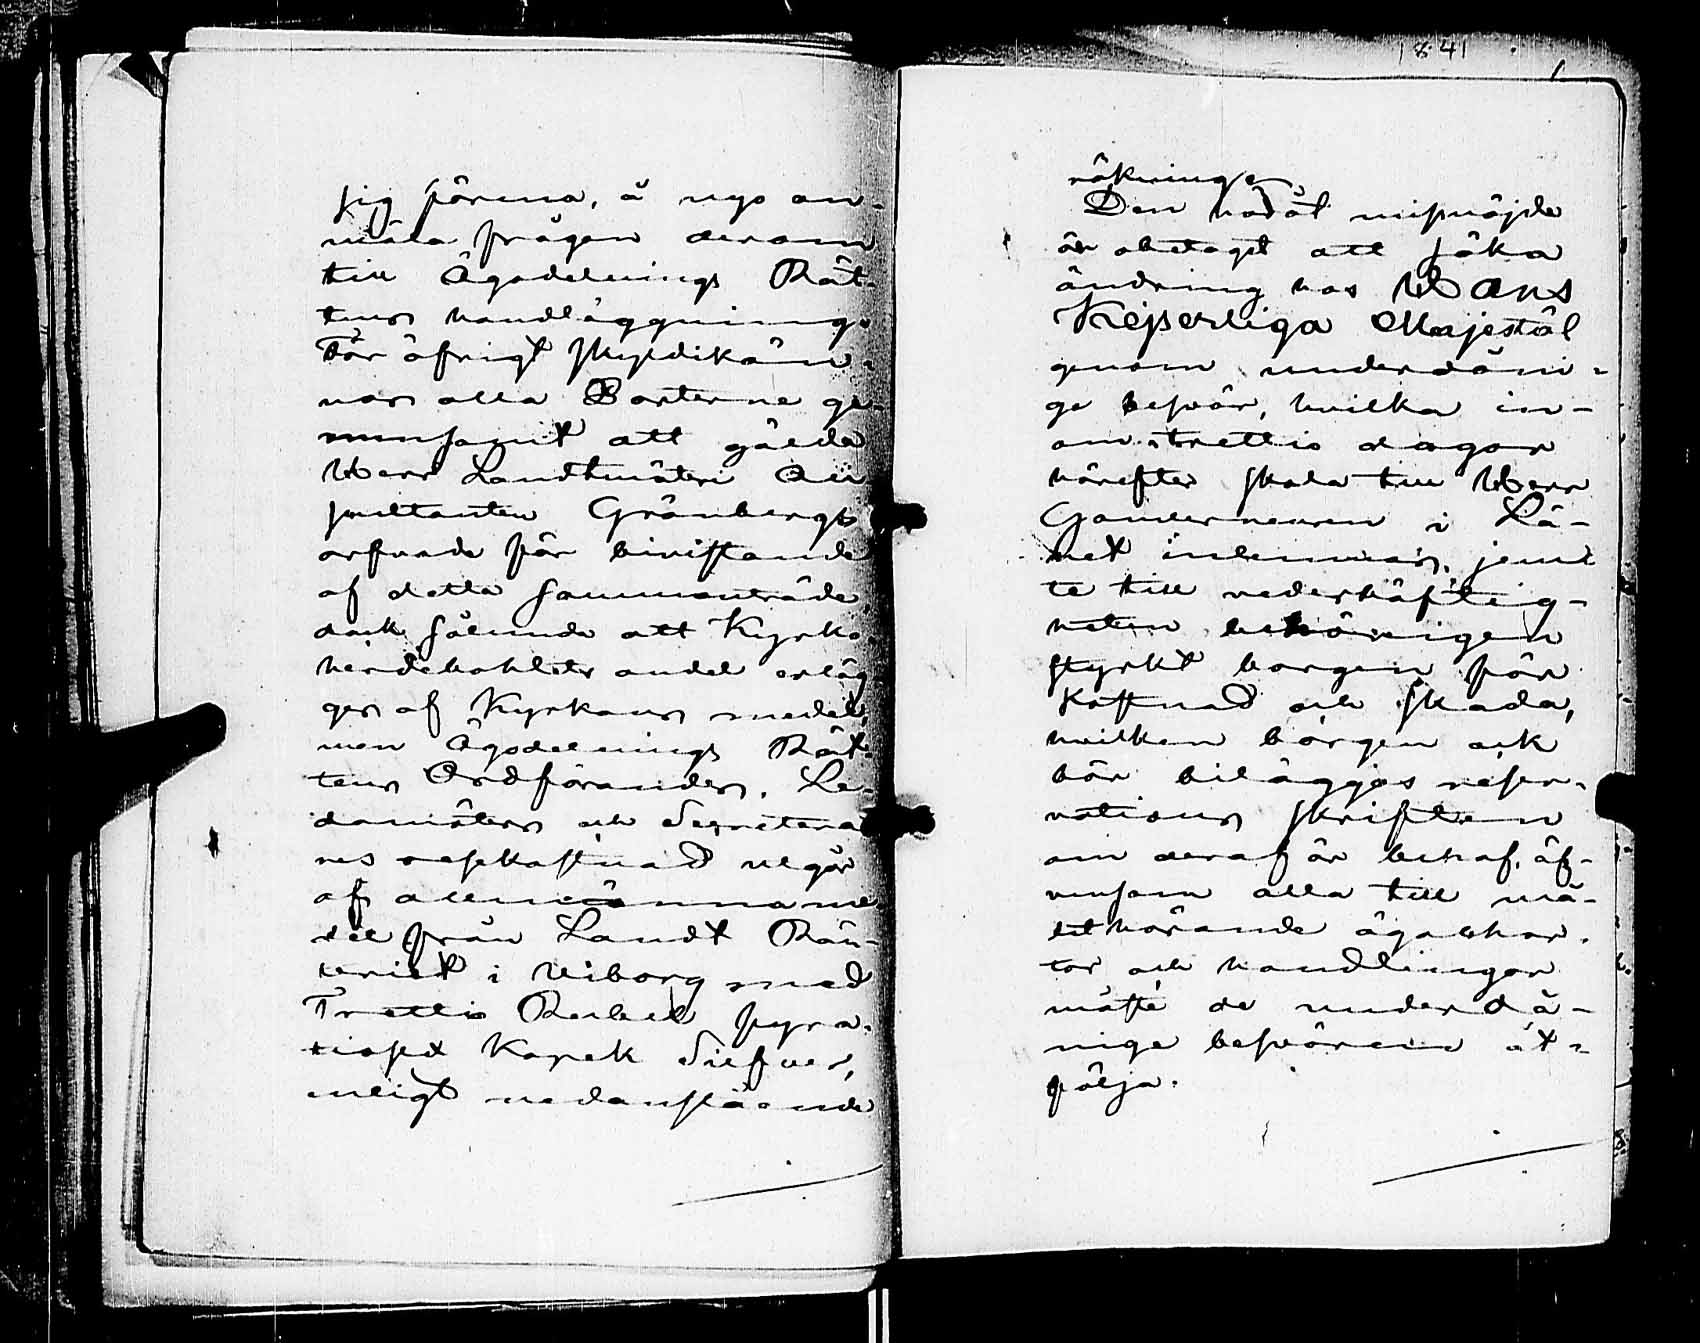 sig förena, å nyo an-
mäla frågan derom
till Ägodelnings Rät-
tens handläggning.
För öfrigt skyldikän-
nas alla Parterne ge-
mensamt att gälda
Herr Landtmäteri Au
scultanten Grönbergs
arfvode för bivistande
af detta sammanträde
dock sålunda att Kyrko-
herdebohlets andel erläg
ges af Kyrkans medel,
men Ägodelnings Rät-
tens Ordförandes, Le-
damöters och Secretera
res resekostnad utgår
af allmänna me-
del från Landt Rän-
teriet i Wiborg med
Trettio Rubel fyra-
tiosex Kopek Silfver,
enligt nedanstående
1841
1
räkning.
Den häråt missnöjde
är obetaget att söka
ändring hos Hans
Kejserliga Majestät
genom underdåni-
ga besvär, hvilka in-
om trettio dagar
härefter skola till Herr
Gouverneuren i Lä-
net inlemnas, jem
te till vederhäftig-
heten behörigen
styrkt borgen för
kostnad och skada,
hvilken borgen ock
bör biläggas reser-
vations skriften
om deraf är behof, äf-
vensom alla till må-
let hörande ägokar-
tor och handlingar
måste de underdå-
nige besvären åt-
följa.